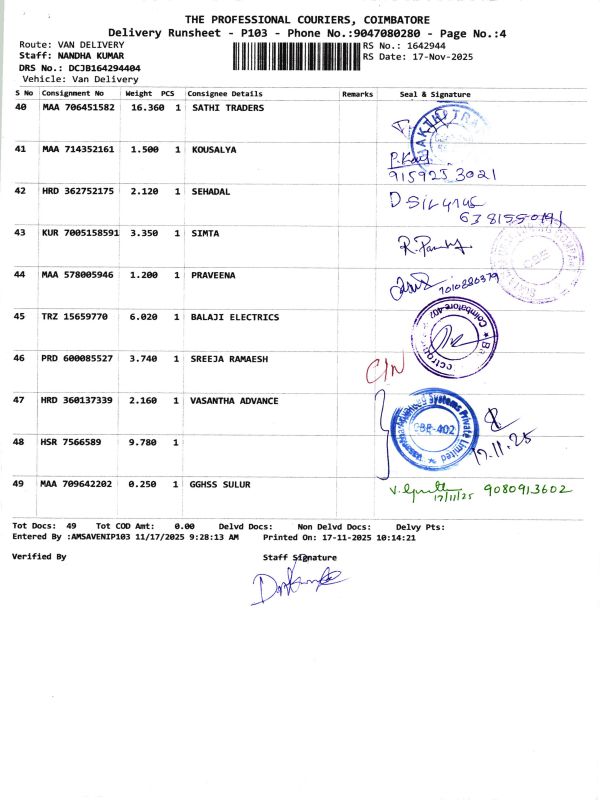 THE PROFESSIONAL COURIERS, COIMBATORE
Delivery Runsheet - P103 - Phone No.:9047080280 - Page No.:4
Route: VAN DELIVERY
RS No.: 1642944
Staff: NANDHA KUMAR
RS Date: 17-Nov-2025
DRS No.: DCJB164294404
Vehicle: Van Delivery
S No Consignment No Weight PCS Consignee Details Remarks Seal & Signature
40 MAA 706451582 16.360 1 SATHI TRADERS
41 MAA 714352161 1.500 1 KOUSALYA
9159253021
42 HRD 362752175 2.120 1 SEHADAL
43 KUR 7005158591 3.350 1 SIMTA
44 MAA 578005946 1.200 1 PRAVEENA
7010280379
45 TRZ 15659770 6.020 1 BALAJI ELECTRICS
Coimbatore-402
46 PRD 600085527 3.740 1 SREEJA RAMAESH
C/N
47 HRD 360137339 2.160 1 VASANTHA ADVANCE
Vasantha Advanced Systems Private Limited
CBE-402
17.11.25
48 HSR 7566589 9.780 1
49 MAA 709642202 0.250 1 GGHSS SULUR
17/11/25 9080913602
Tot Docs: 49 Tot COD Amt: 0.00 Delvd Docs: Non Delvd Docs: Delvy Pts:
Entered By :AMSAVENIP103 11/17/2025 9:28:13 AM Printed On: 17-11-2025 10:14:21
Verified By Staff Signature